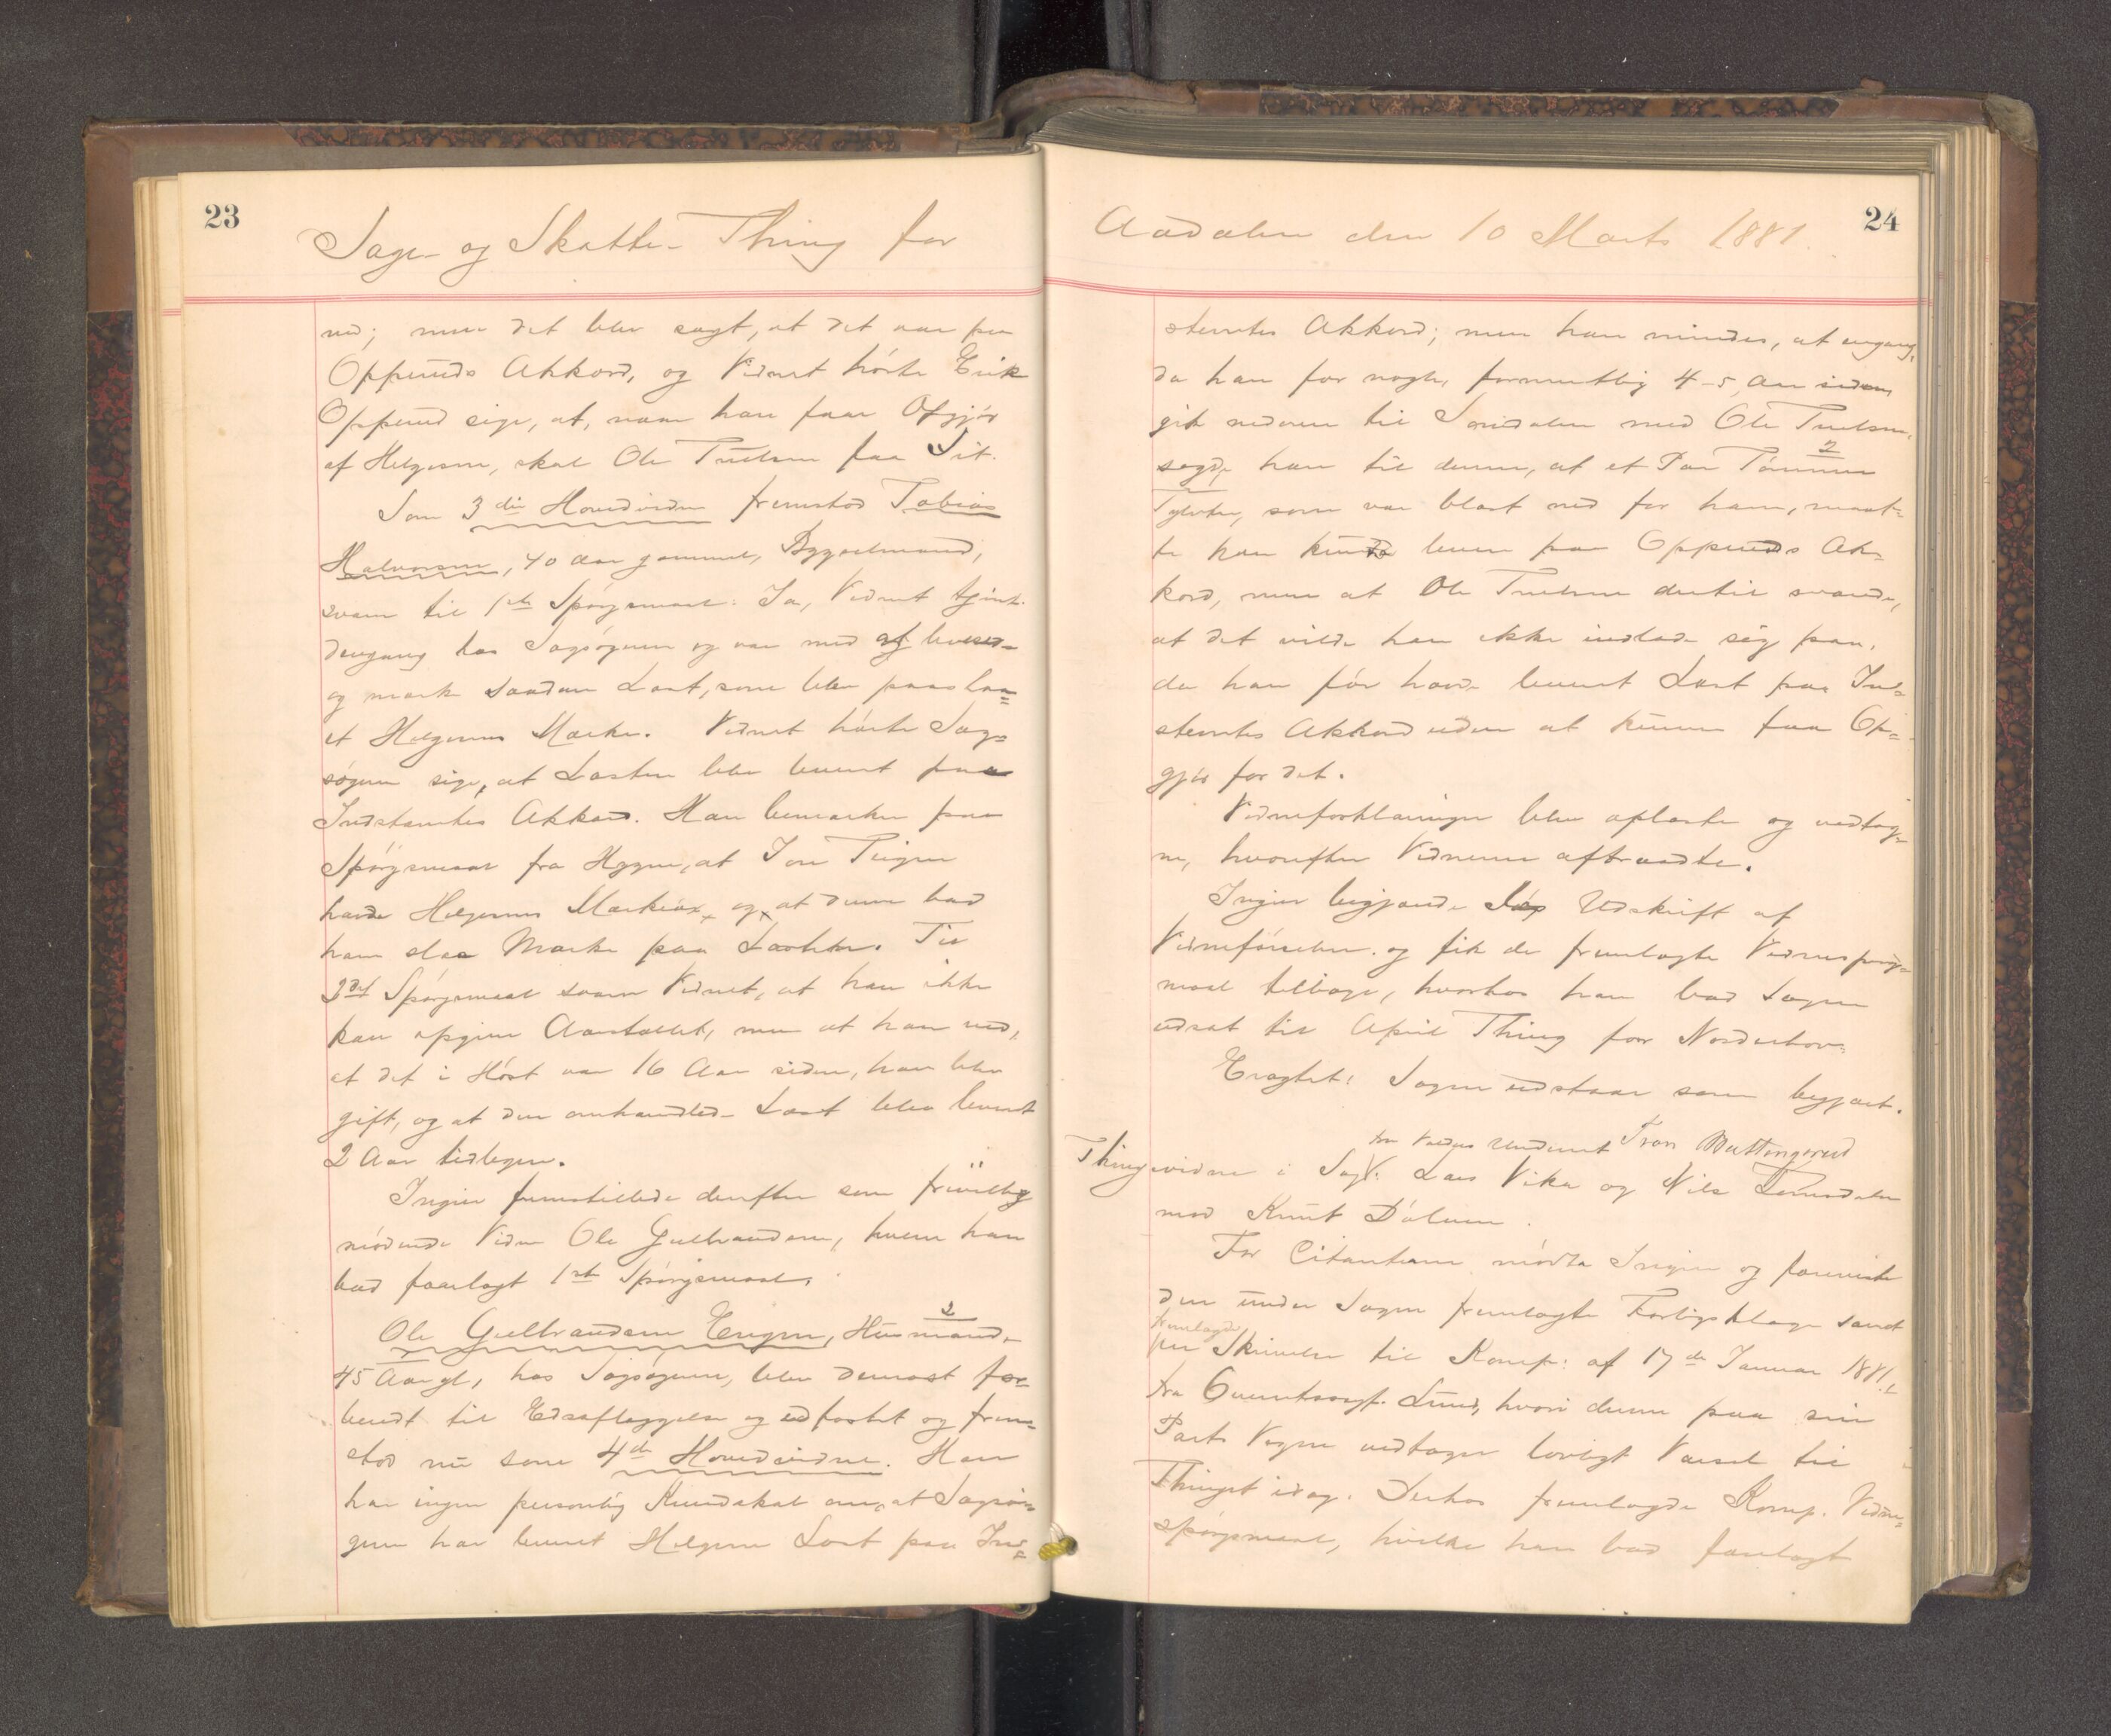 23
Sage- og Skatte-Thing for
ned; men det blev sagt, at det var paa
Opperuds Akkord, og Vidnet hørte Erik
Opperud sige, at, naar han faar Opgjør
af Helgesen, skal Ole Truelsen faa Sit.
Som 3die Hovedvidne fremstod Tobias
Halvorsen, 40 Aar gammel, Bygselmand,
svarer til 1ste Spørgsmaal: Ja, Vidnet tjente
dengang hos Sagsøgeren og var med at levere
og mærke saadan Last, som blev paaslaa-
et Helgesens Mærke. Vidnet hørte Sag-
søgeren sige, at Lasten blev leveret paa
Indstævntes Akkord. Han bemærker paa
Spørgsmaal fra Hggren, at Jon Teigen
havde Helgesens Mærkeøx, og at denne bad
ham slaa Mærke paa Lasten. Til
3die Spørgsmaal svarer Vidnet, at han ikke
kan opgive Aarstallet, men at han ved,
at det i Høst var 16 Aar siden, han blev
gift, og at den omhandlede Last blev leveret
2 Aar tidligere.
Ingier fremstillede derefter som frivillig
mødende Vidne Ole Gulbrandsen, hvem han
bad forelagt 1ste Spørgsmaal.
Ole Gulbrandsen Engen, Husmand
45 Aar gl, hos Sagsøgeren, blev dernæst for-
beredt til Edsaflæggelse og edfæstet og frem-
stod nu som 4de Hovedvidne. Han
har ingen personlig Kundskab om, at Sagsø-
geren har leveret Helgesen Last paa Ind-
24
Aadalen den 10 Marts 1881.
stævntes Akkord; men han mindes, at engang,
da han for nogle, formentlig 4-5, Aar siden
gik nedover til Sørudalen med Ole Truelsen,
sagde han til denne, at et Par Tømmer
Tylvter, som var blæst ned for ham, maat-
te han kunde levere paa Opperuds Ak-
kord, men at Ole Truelsen dertil svarede,
at det vilde han ikke indlade sig paa,
da han før havde leveret Last paa Ind-
stævntes Akkord uden at kunne faa Op-
gjør for det.
Vidneforklaringen blev oplæste og vedtag-
ne, hvorefter Vidnerne aftraadte.
Ingier begjærede Udskrift af
Vidneførselen og fik de fremlagte Vidnespørgs-
maal tilbage, hvorhos han bad Sagen
udsat til April Thing for Norderhov.
Eragtet: Sagen udstaar som begjært.
for Valdres Underret Tron Buttingsrud
Thingsvidne i Sag: Lars Vika og Nils
mod Knut Dølven.
For Citanterne mødte Ingier og foreviste
den under Sagen fremlagte Forligsklage samt
fremlagde
per Skrivelse til Komp: af 17de Januar 1881
fra Overretssagf. Lund, hvori denne paa sin
Parts Vegne vedtager lovligt Varsel til
Thinget idag. Derhos fremlagde Komp. Vidne-
spørgsmaal, hvilke han bad forelagt